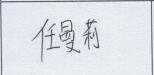 任曼莉